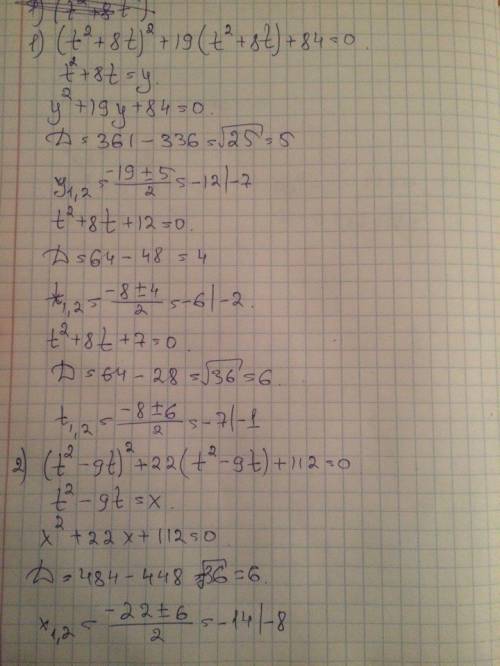 1) (t² + 8t)² + 19(t² + 8t) + 84 = 0.
t² + 8t = y.
y² + 19y + 84 = 0.
D = 361 - 336 = √25 = 5
y₁,₂ = (-19 ± 5)/2 = -12 | -7
t² + 8t + 12 = 0.
D = 64 - 48 = 4
t₁,₂ = (-8 ± 4)/2 = -6 | -2.
t² + 8t + 7 = 0.
D = 64 - 28 = √36 = 6.
t₁,₂ = (-8 ± 6)/2 = -7 | -1
2) (t² - 9t)² + 22(t² - 9t) + 112 = 0
t² - 9t = x.
x² + 22x + 112 = 0.
D = 484 - 448 = √36 = 6.
x₁,₂ = (-22 ± 6)/2 = -14 | -8